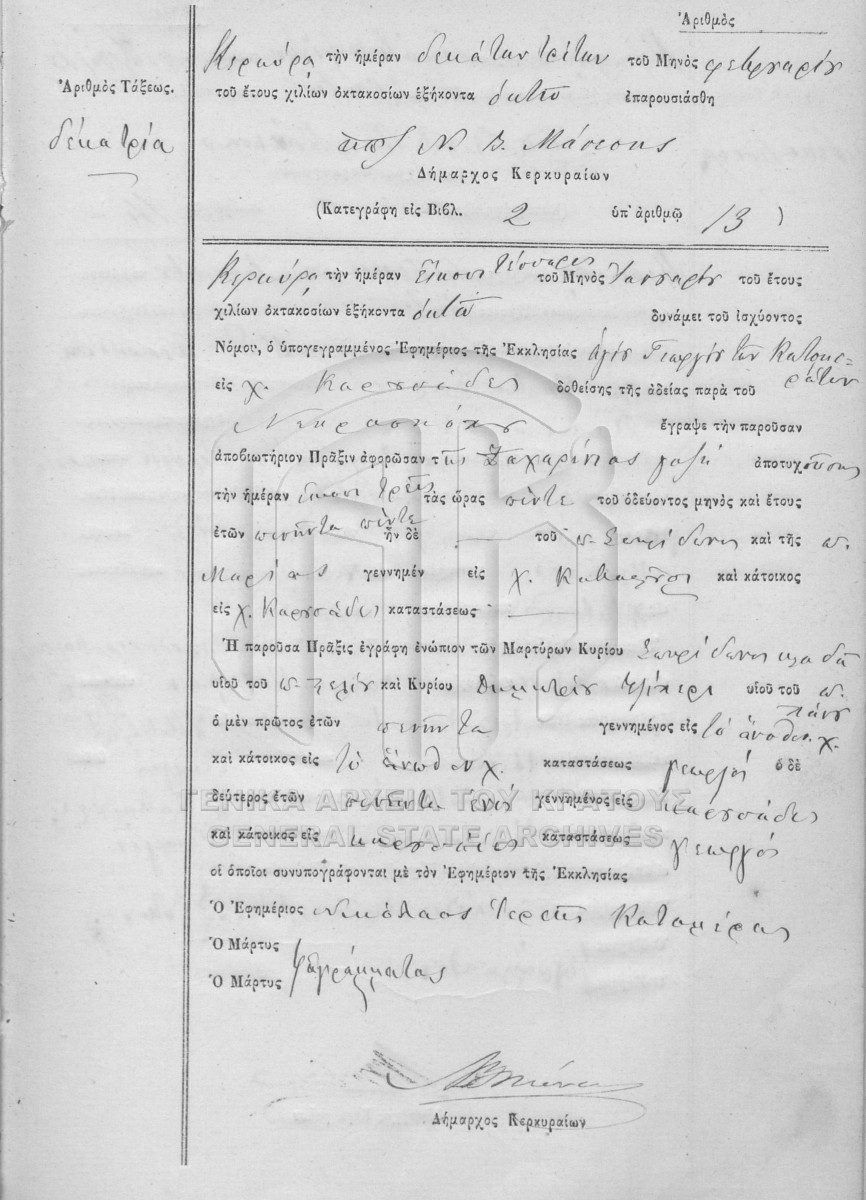 Ἀριθμὸς
Κερκύρα τὴν ἡμέραν δεκάτην τρίτην τοῦ Μηνὸς φεβρουαρίου
Ἀριθμὸς Τάξεως.
τοῦ ἔτους χιλίων ὀκτακοσίων ἑξήκοντα ὀκτὼ ἐπαρουσιάσθη
δέκα τρία
Ν. Β. Μάνεσης
Δήμαρχος Κερκυραίων
(Κατεγράφη εἰς Βιβλ. 2 ὑπ' ἀριθμῷ 13)
Κερκύρα τὴν ἡμέραν εἴκοσι τέσσαρες τοῦ Μηνὸς Ἰανουαρίου τοῦ ἔτους
χιλίων ὀκτακοσίων ἑξήκοντα ὀκτὼ δυνάμει τοῦ ἰσχύοντος
Νόμου, ὁ ὑπογεγραμμένος Ἐφημέριος τῆς Ἐκκλησίας ἁγίου Γεωργίου των
εἰς χ. Καρουσάδες δοθείσης τῆς ἀδείας παρὰ τοῦ
Νεκροσκόπου ἔγραψε τὴν παροῦσαν
ἀποβιωτήριον Πρᾶξιν ἀφορῶσαν τῆς Ζαχαρίνιας ἀποτυχούσης
τὴν ἡμέραν εἴκοσι τρεῖς τὰς ὥρας πέντε τοῦ ὁδεύοντος μηνὸς καὶ ἔτους
ἐτῶν πενήντα πέντε ἦν δὲ τοῦ π. Σπυρίδωνος καὶ τῆς π.
Μαρίας γεννημέν εἰς χ. καὶ κάτοικος
εἰς χ. Καρουσάδες καταστάσεως
Ἡ παροῦσα Πρᾶξις ἐγράφη ἐνώπιον τῶν Μαρτύρων Κυρίου Σπυρίδωνος
υἱοῦ τοῦ π. καὶ Κυρίου Δημητρίου υἱοῦ τοῦ π. Πάνου
ὁ μὲν πρῶτος ἐτῶν πενήντα γεννημένος εἰς τὸ ἄνωθεν χ.
καὶ κάτοικος εἰς τὸ ἄνωθεν χ. καταστάσεως γεωργός ὁ δὲ
δεύτερος ἐτῶν πενήντα ενός γεννημένος εἰς καρουσάδες
καὶ κάτοικος εἰς καρουσάδες καταστάσεως γεωργός
οἱ ὁποῖοι συνυπογράφονται μὲ τὸν Ἐφημέριον τῆς Ἐκκλησίας
Ὁ Ἐφημέριος Νικόλαος Ἱερεὺς
Ὁ Μάρτυς
Ὁ Μάρτυς ἀγράμματος
Δήμαρχος Κερκυραίων
ΓΕΝΙΚΑ ΑΡΧΕΙΑ ΤΟΥ ΚΡΑΤΟΥΣ
GENERAL STATE ARCHIVES